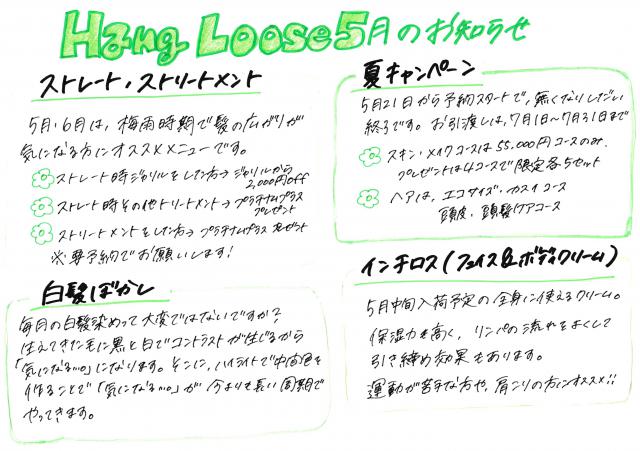 Hang Loose 5月のお知らせ
ストレート・ストリートメント
5月・6月は、梅雨時期で髪の広がりが
気になる方にオススメメニューです。
ストレート時ジカリルをした方→ジカリルから
2,000円off
ストレート時その他トリートメント→プラチナムプラス
プレゼント
ストリートメントをした方→プラチナムプラスプレゼント
※要予約でお願いします!
白髪ぼかし
毎月の白髪染めって大変ではないですか?
はえてきた毛に黒と白でコントラストが生じるから
「気になる…。」になります。そこに、ハイライトで中間色を
作ることで「気になる…。」が今よりも長い周期で
やってきます。
夏キャンペーン
5月21日から予約スタートで、無くなりしだい
終了です。お引渡しは、7月1日〜7月31日まで
スキン・メイクコースは55.000円コースのみ。
プレゼントは4コースで限定各5セット
ヘアは、エコサイズ・カスイコース
頭皮・頭髪ケアコース
インチロス(フェイス&ボディクリーム)
5月中間入荷予定の全身に使えるクリーム。
保湿力も高く、リンパの流れをよくして
引き締め効果もあります。
運動が苦手な方や、肩こりの方にオススメ!!